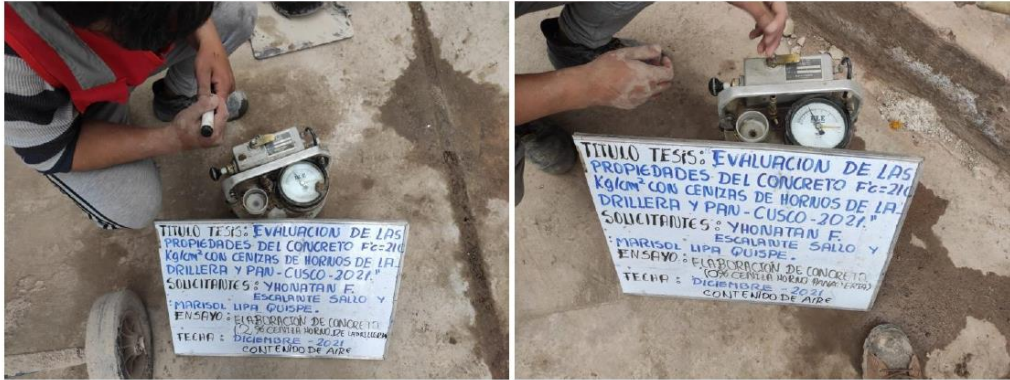 TITULO TESIS: EVALUACION DE LAS
PROPIEDADES DEL CONCRETO F'c=210
Kg/cm² CON CENIZAS DE HORNOS DE LA
DRILLERA Y PAN - CUSCO - 2021."
SOLICITANTES: YHONATAN F.
ESCALANTE SALLO Y
MARISOL LIPA QUISPE.
ENSAYO: ELABORACION DE CONCRETO
CENIZA HORNO DE
FECHA: DICIEMBRE - 2021
CONTENIDO DE AIRE
ELE
TITULO TESIS: EVALUACION DE LAS
PROPIEDADES DEL CONCRETO F'c=210
Kg/cm² CON CENIZAS DE HORNOS DE LA
DRILLERA Y PAN - CUSCO - 2021."
SOLICITANTES: YHONATAN F.
ESCALANTE SALLO Y
MARISOL LIPA QUISPE.
ENSAYO: ELABORACION DE CONCRETO
CENIZA HORNO
FECHA: DICIEMBRE - 2021
CONTENIDO DE AIRE